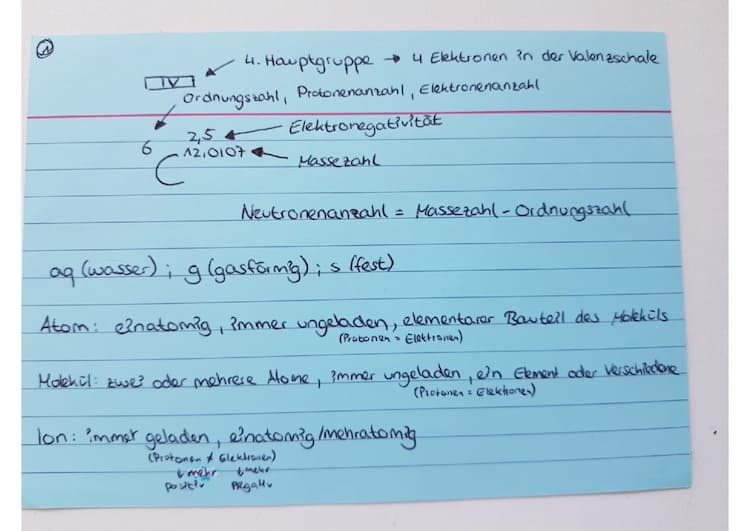 1
4. Hauptgruppe → 4 Elektronen in der Valenzschale
IV
Ordnungszahl, Protonenanzahl, Elektronenanzahl
2,5 ← Elektronegativität
6 12,0107 ← Massezahl
C
Neutronenanzahl = Massezahl - Ordnungszahl
aq (wasser) ; g (gasförmig) ; s (fest)
Atom: einatomig, immer ungeladen, elementarer Bauteil des Moleküls
(Protonen = Elektronen)
Molekül: zwei oder mehrese Atome, immer ungeladen, ein Element oder Verschiedene
(Protonen = Elektronen)
Ion: immer geladen, einatomig/mehratomig
(Protonen ≠ Elektronen)
↓ mehr ↓ mehr
positiv negativ